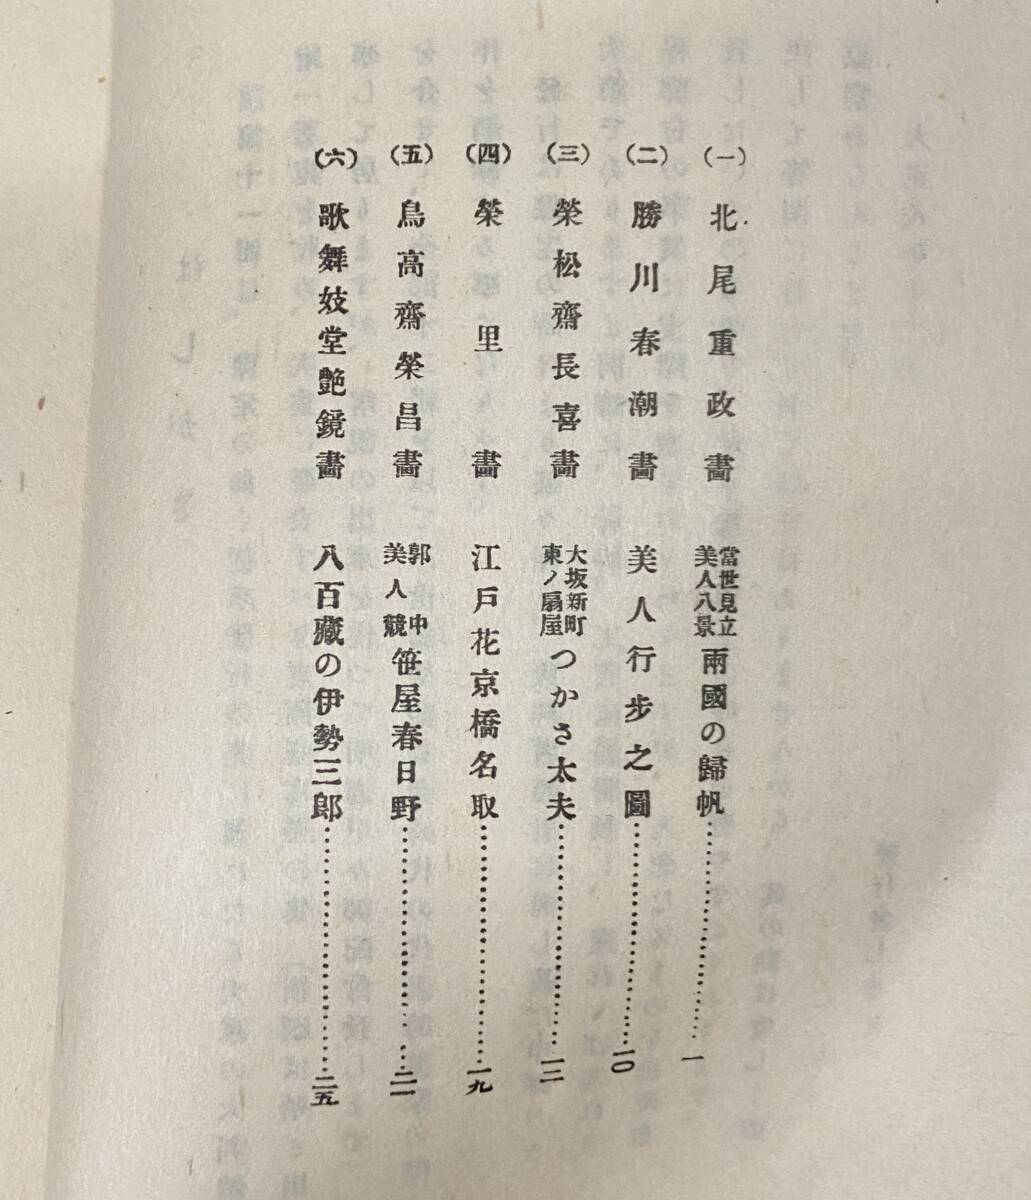 (一) 北尾重政畵 當世見立美人八景 兩國の歸帆……一
(二) 勝川春潮畵 美人行步之圖……一〇
(三) 榮松齋長喜畵 大坂新町東ノ扇屋 つかさ太夫……一二
(四) 榮里畵 江戸花京橋名取……一九
(五) 鳥高齋榮昌畵 郭中美人競 笹屋春日野……二一
(六) 歌舞妓堂艶鏡畵 八百藏の伊勢三郎……二五